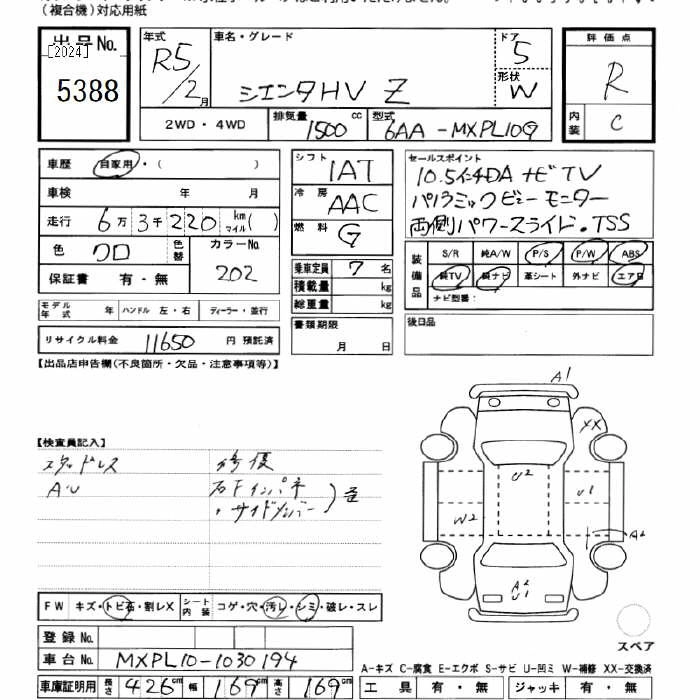 (複合機)対応用紙
出品No. [2024] 5388
年式 R5/2月
車名・グレード シエンタHV Z
ドア 5
形状 W
評価点 R
内装 C
2WD・4WD
排気量 1500 cc
型式 6AA-MXPL10G
車歴 自家用・( )
車検 年 月
走行 6万3千220 km マイル( )
色 クロ 色替 カラーNo 202
保証書 有・無
シフト IAT
冷房 AAC
燃料 G
乗車定員 7名
積載量 kg
総重量 kg
書類期限 月 日
セールスポイント
10.5インチDA ナビTV
パノラミックビューモニター
両側パワースライド・TSS
装備品 S/R 純A/W P/S P/W ABS
純TV 純ナビ 革シート 外ナビ エアB
ナビ型番:
後日品
モデル年式 年 ハンドル 左・右 ディーラー・並行
リサイクル料金 11650 円 預託済
【出品店申告欄(不良箇所・欠品・注意事項等)】
【検査員記入】
スタッドレス 修復
AU 右Fインパネ
・サイドメンバー 歪
A1
XX
U2
U1
W2
A2
A2
U1
スペア
FW キズ・トビ石・割レX シート内装 コゲ・穴・汚レ・シミ・破レ・スレ
登録No.
車台No. MXPL10-1030194
車庫証明用 長さ 426cm 幅 169cm 高さ 169cm
A-キズ C-腐食 E-エクボ S-サビ U-凹ミ W-補修 XX-交換済
工具 有・無 ジャッキ 有・無